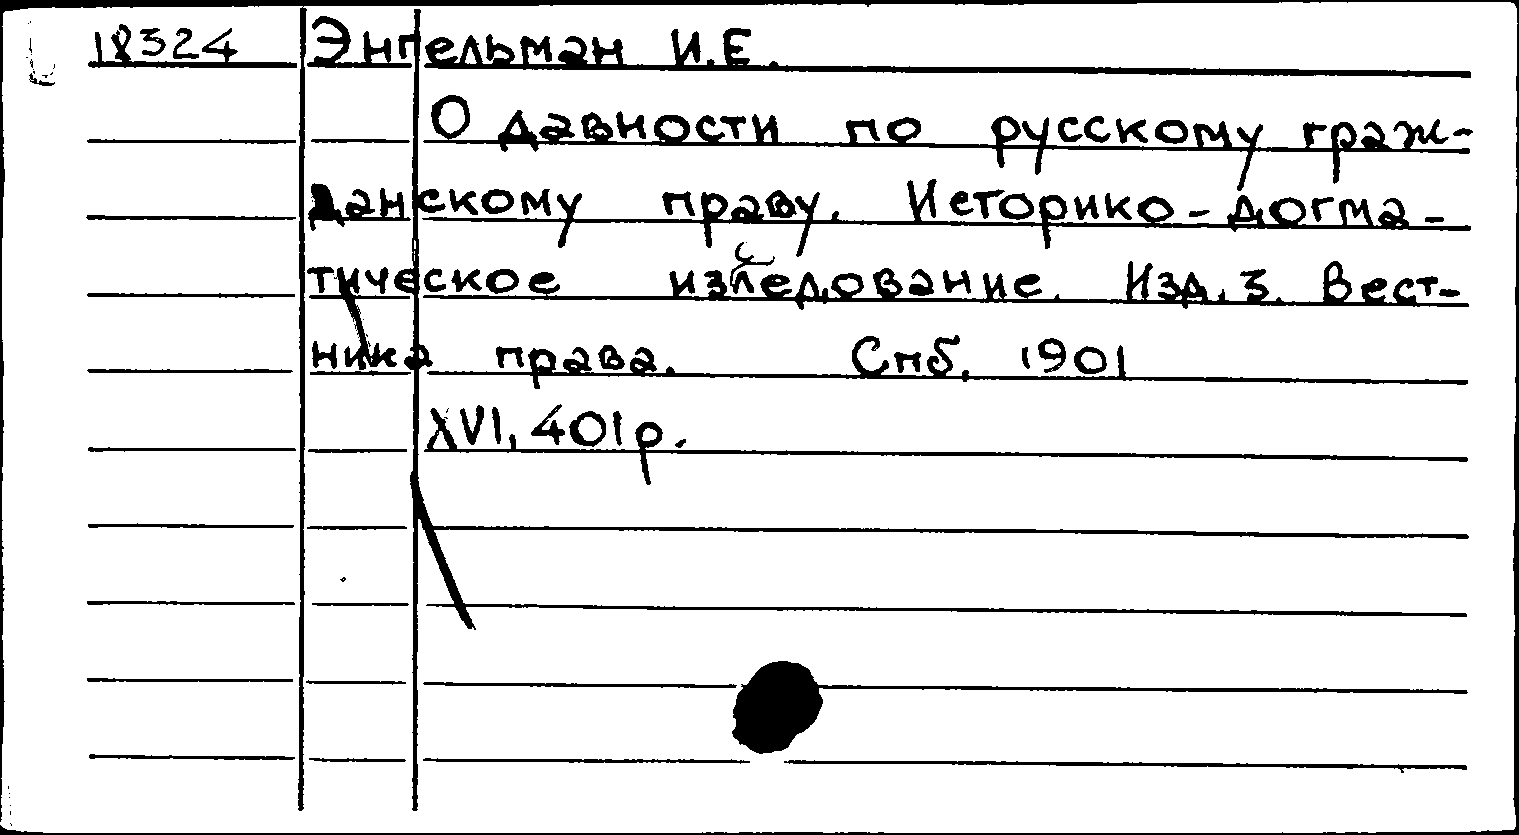 18324 Энгельман И.Е.
О давности по русскому граж-
данскому праву. Историко-догма-
тическое изследование. Изд. 3. Вест-
ника права. Спб. 1901
XVI, 401 p.